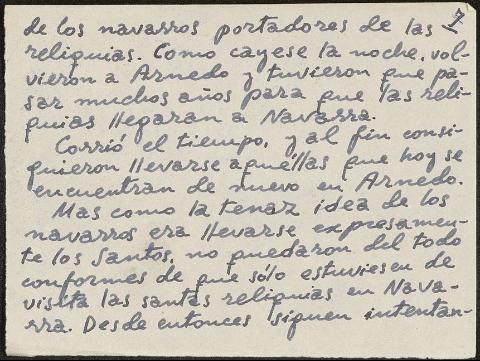 7
de los navarros portadores de las
reliquias. Como cayese la noche, vol-
vieron a Arnedo y tuvieron que pa-
sar muchos años para que las reli-
quias llegaran a Navarra.
Corrió el tiempo, y al fin consi-
guieron llevarse aquéllas que hoy se
encuentran de nuevo en Arnedo.
Mas como la tenaz idea de los
navarros era llevarse expresamen-
te los Santos, no quedaron del todo
conformes de que sólo estuviesen de
visita las santas reliquias en Nava-
rra. Desde entonces siguen intentan-